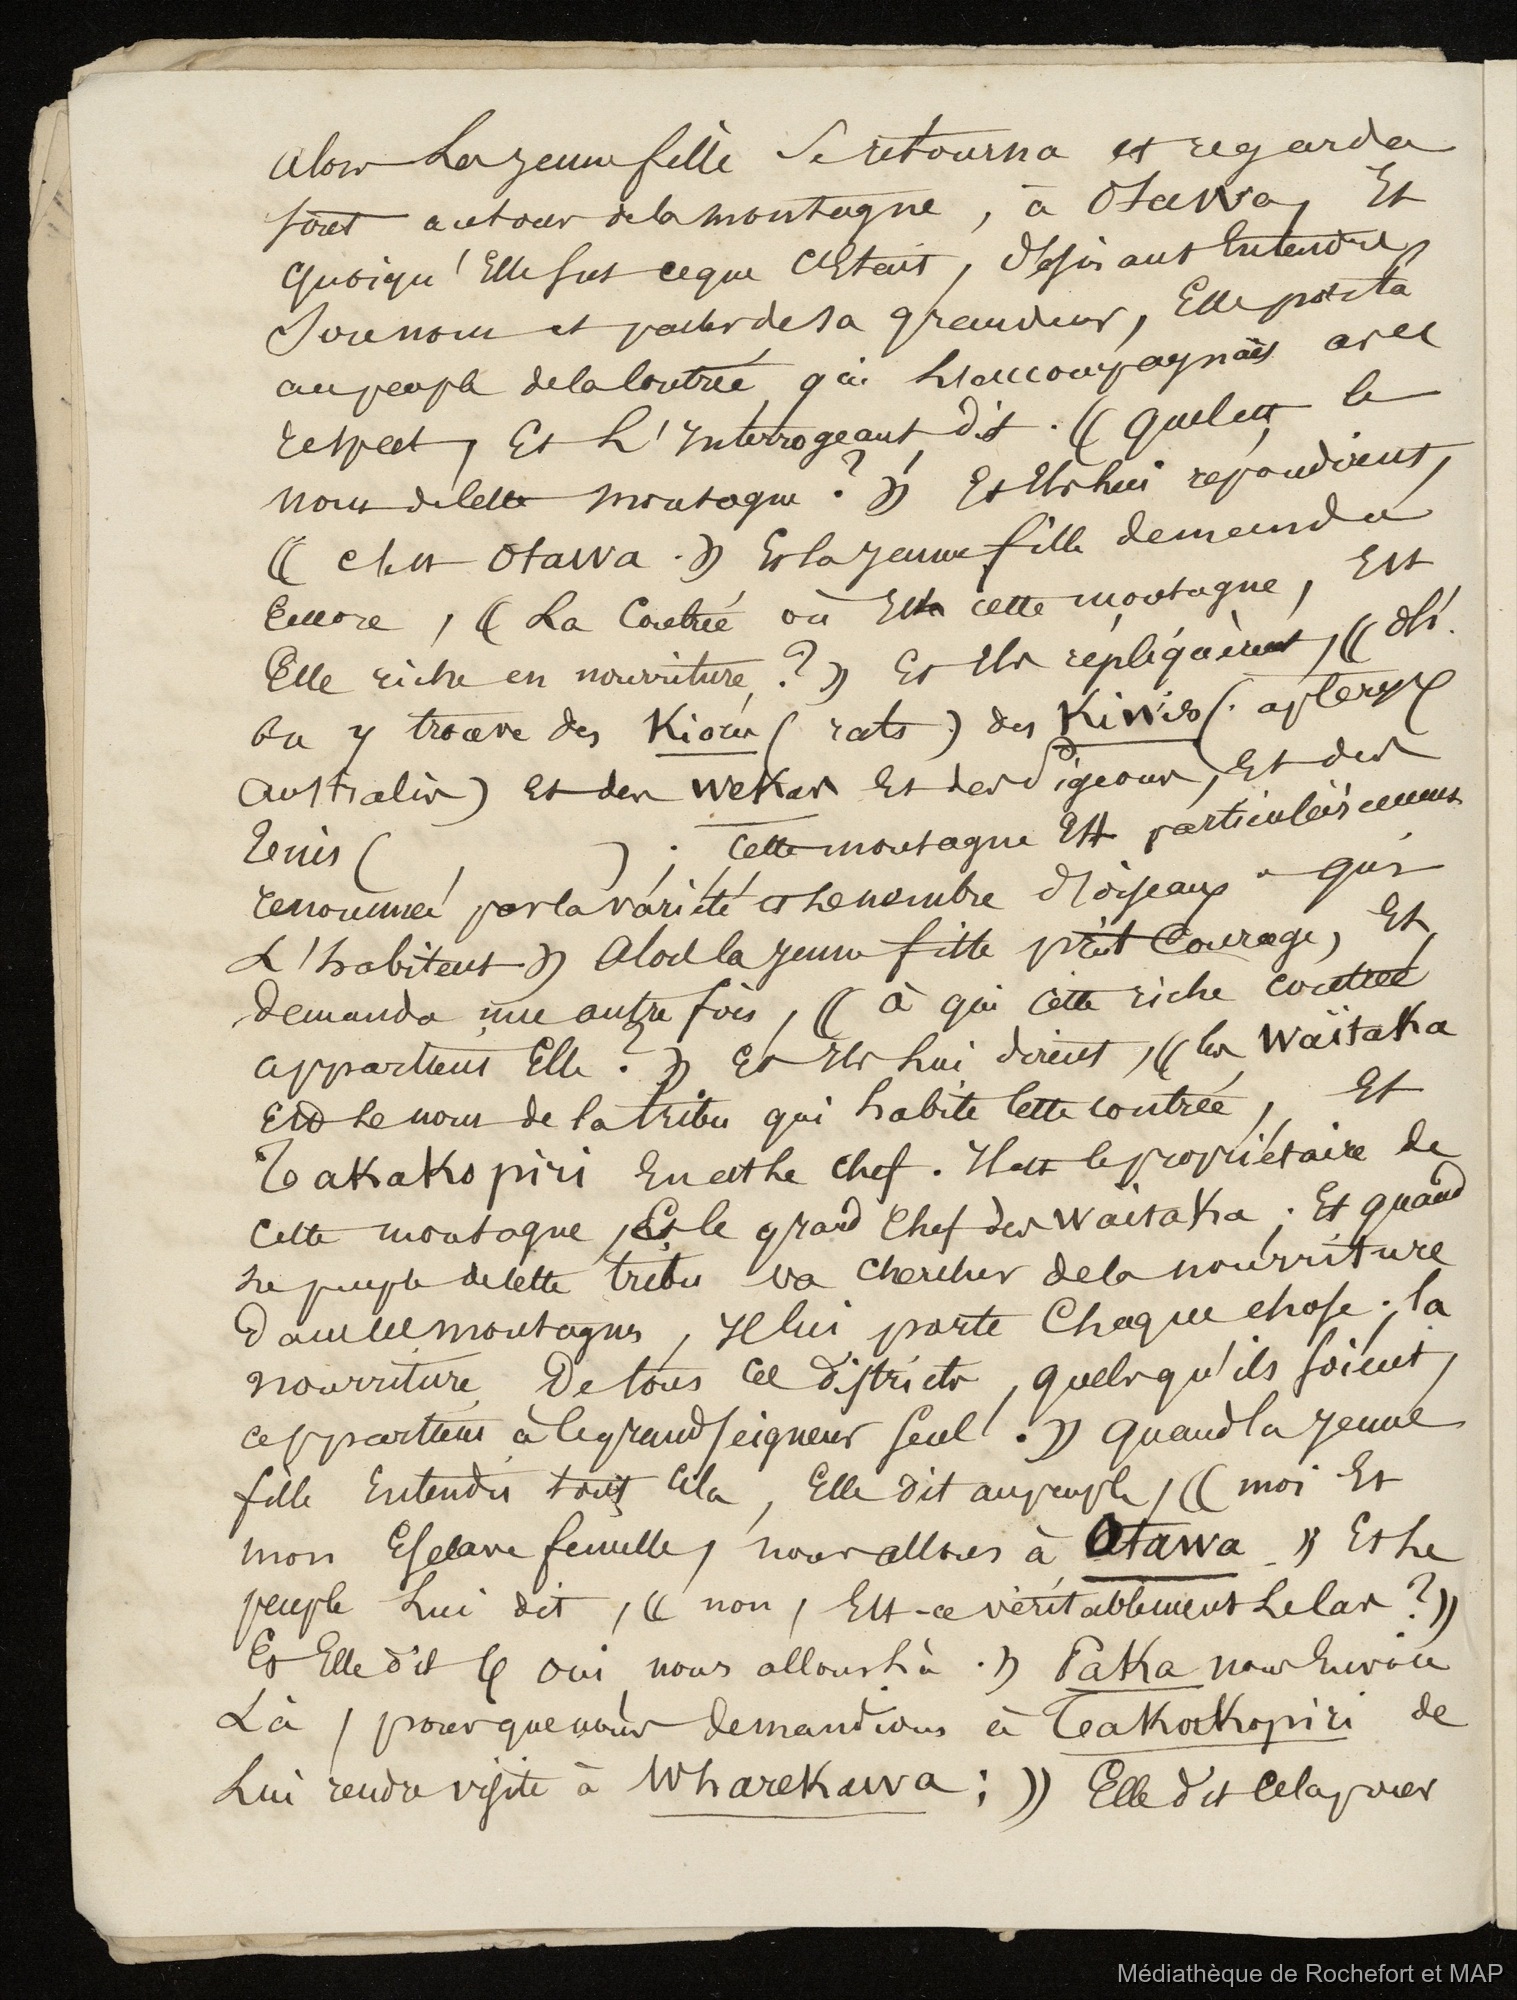 alors la jeune fille se retourna et regarda
tout autour de la montagne, à Otawa, Et
quoiqu'Elle sut ce que c'Etait, desirant Entendre
son nom et parler de sa grandeur, Elle
au peuple de la Contrée qui L'accompagnait avec
respect, Et L'Interrogeant dit. (( quel est le
nom de Cette montagne ? )) Et Ils Lui répondirent,
(( c'est Otawa. )) Et la jeune fille demanda
Encore, (( La Contrée où Est cette montagne, Est
Elle riche en nourriture ? )) Et Ils répliquèrent, (( Oh!
On y trouve des Kiore ( rats ) des Kiwis (. apteryx
australis) Et des wekas Et des Pigeons, Et des
Tuis ( ) ; Cette montagne Est particulièrement
renommée par la variété et Le nombre d'oiseaux qui
L'habitent )) Alors la jeune fille prit Courage, Et
demanda une autre fois, (( à qui cette riche contrée
appartient Elle ? )) Et Ils Lui dirent, (( les Waïtaka
Est Le nom de la tribu qui habite Cette contrée, Et
Takakopiri En est Le chef. Il est le propriétaire de
Cette montagne, Et le grand Chef des Waïtaka ; Et quand
Le peuple de Cette tribu va Chercher de la nourriture
Dans Ces montagnes, Il lui porte Chaque chose ; la
nourriture De tous Ces districts, quels qu'ils soient,
appartient à Ce grand seigneur seul. )) quand la jeune
fille Entendit tout Cela, Elle dit au peuple, (( moi Et
mon Esclave femelle, nous allons à Otawa )) Et Le
peuple Lui dit, (( non, Est-ce véritablement Le Cas ? ))
Et Elle dit (( oui nous allons Là. )) Paka nous Envoie
Là, pour que nous demandions à Takakopiri de
Lui rendre visite à Wharekawa ; )) Elle dit Cela pour
Médiathèque de Rochefort et MAP